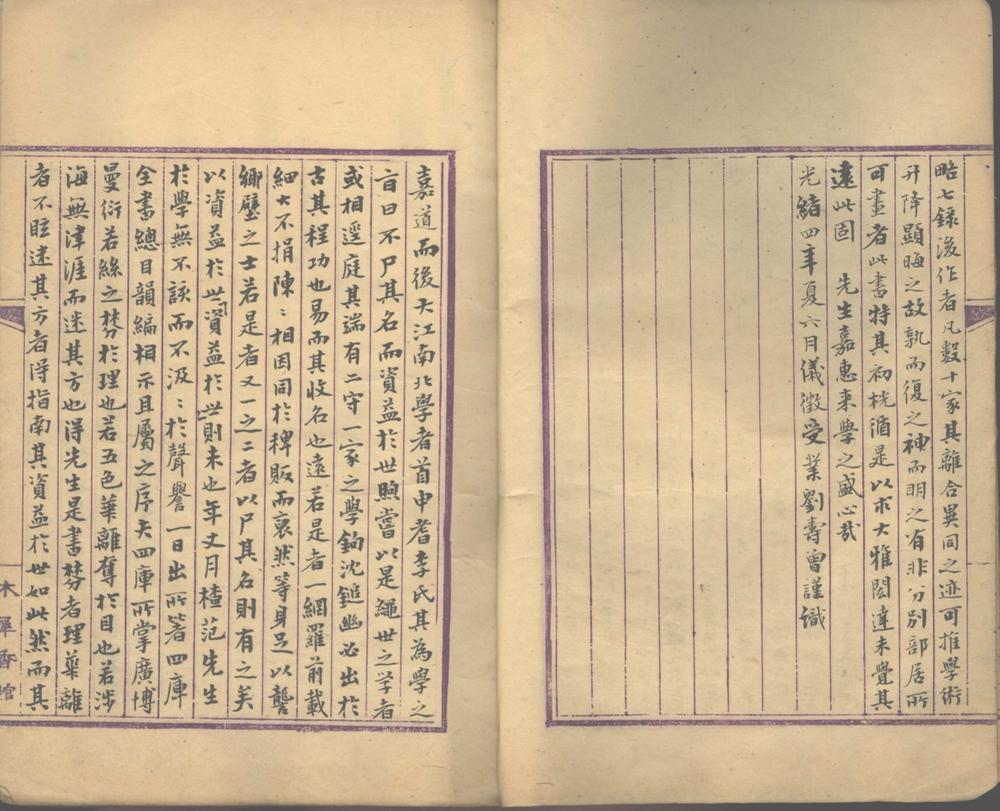 略七錄後作者凡數十家其離合異同之迹可推學術
升降顯晦之故孰而復之神而明之有非分別部居所
可畫者此書特其初桄循是以求大雅閎達未覺其
遠此固　先生嘉惠來學之盛心哉
光緒四年夏六月儀徵受業劉壽曾謹識
嘉道而後大江南北學者首申耆李氏其為學之
言曰不尸其名而資益於世煦嘗以是繩世之学者
或相逕庭其端有二守一家之學鉤沈鎚幽必出於
古其程功也易而其收名也遠若是者一網羅前載
細大不捐陳〻相因同於稗販而裒然等身足以聾
鄉壁之士若是者又一之二者以尸其名則有之矣
以資益於世資益於世則未也年丈月楂范先生
於學無不該而不汲〻於聲譽一日出所箸四庫
全書總目韻編相示且屬之序夫四庫所掌廣博
曼衍若絲之棼於理也若五色華離奪於目也若涉
海無津涯而迷其方也得先生是書棼者理華離
者不眩迷其方者得指南其資益於世如此然而其
木犀香館